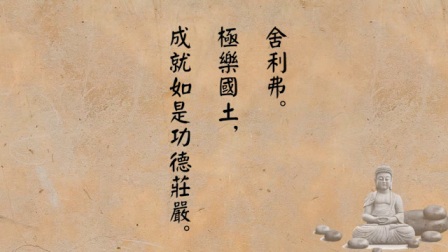 舍利弗。
極樂國土，
成就如是功德莊嚴。